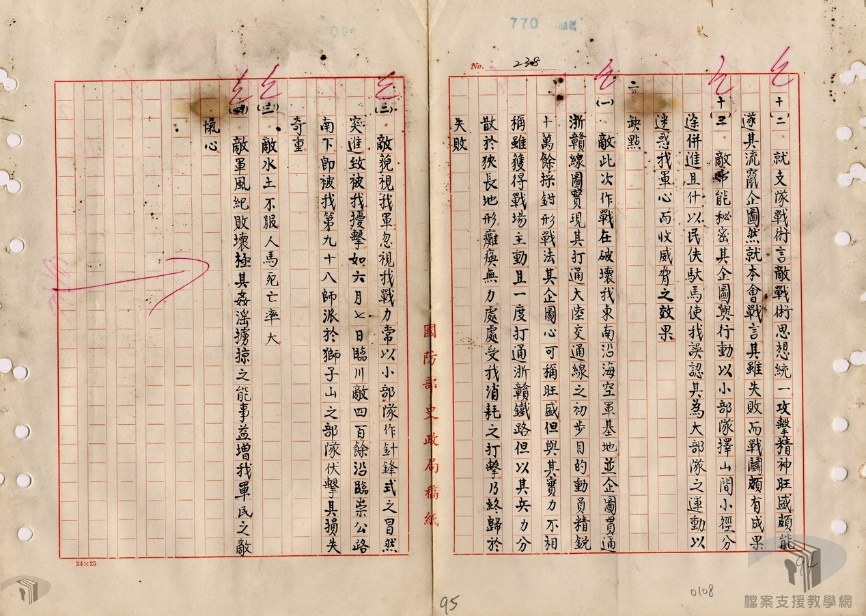 770
No. 238
十二 就支隊戰術言敵戰術思想統一攻擊精神旺盛頗能
遂其流竄企圖然就本會戰言其雖失敗而戰鬪頗有成果
十三 敵能秘密其企圖與行動以小部隊擇山間小徑分
途併進且什以民伕馱馬使我誤認其為大部隊之運動以
迷惑我軍心而收威脅之效果
二 缺點
(一) 敵此次作戰在破壞我東南沿海空軍基地並企圖貫通
浙贛線圖實現其打通大陸交通線之初步目的動員精銳
十萬餘採鉗形戰法其企圖心可稱旺盛但與其實力不相
稱雖獲得戰場主動且一度打通浙贛鐵路但以其兵力分
散於狹長地形癱瘓無力處處受我消耗之打擊乃終歸於
失敗
國防部史政局稿紙
(二) 敵藐視我軍忽視我戰力常以小部隊作針鋒式之冒然
突進致被我擾擊如六月七日臨川敵四百餘沿臨崇公路
南下即被我第九十八師派於獅子山之部隊伏擊其損失
奇重
(三) 敵水土不服人馬死亡率大
(四) 敵軍風紀敗壞極其姦淫擄掠之能事益增我軍民之敵
愾心
24×25
95
94
0108
檔案支援教學網